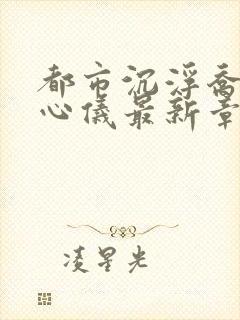 都市沉浮喬
心儀最新章
凌星光